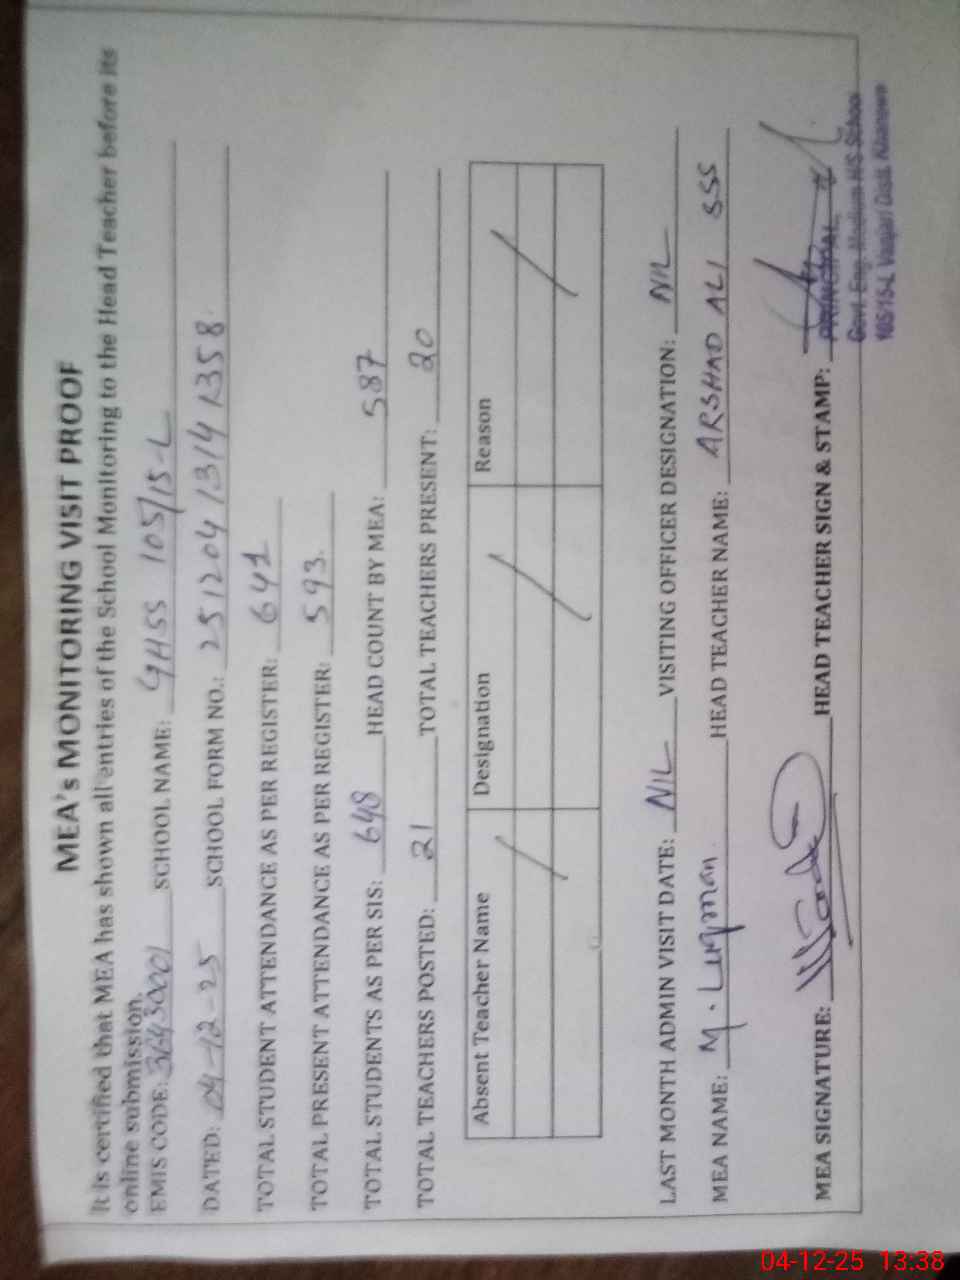 MEA's MONITORING VISIT PROOF
It is certified that MEA has shown all entries of the School Monitoring to the Head Teacher before its
online submission.
EMIS CODE: 36430001 SCHOOL NAME: GHSS 105/15-L
DATED: 04-12-25 SCHOOL FORM NO.: 251204 1314 1358
TOTAL STUDENT ATTENDANCE AS PER REGISTER: 641
TOTAL PRESENT ATTENDANCE AS PER REGISTER: 593.
TOTAL STUDENTS AS PER SIS: 648 HEAD COUNT BY MEA: 587
TOTAL TEACHERS POSTED: 21 TOTAL TEACHERS PRESENT: 20
Absent Teacher Name Designation Reason
LAST MONTH ADMIN VISIT DATE: NIL VISITING OFFICER DESIGNATION: NIL
MEA NAME: M. Luqman HEAD TEACHER NAME: ARSHAD ALI SSS
MEA SIGNATURE: HEAD TEACHER SIGN & STAMP:
PRINCIPAL
Govt. Eng. Medium H/S School
105/15-L Distt. Khanewal
04-12-25 13:38